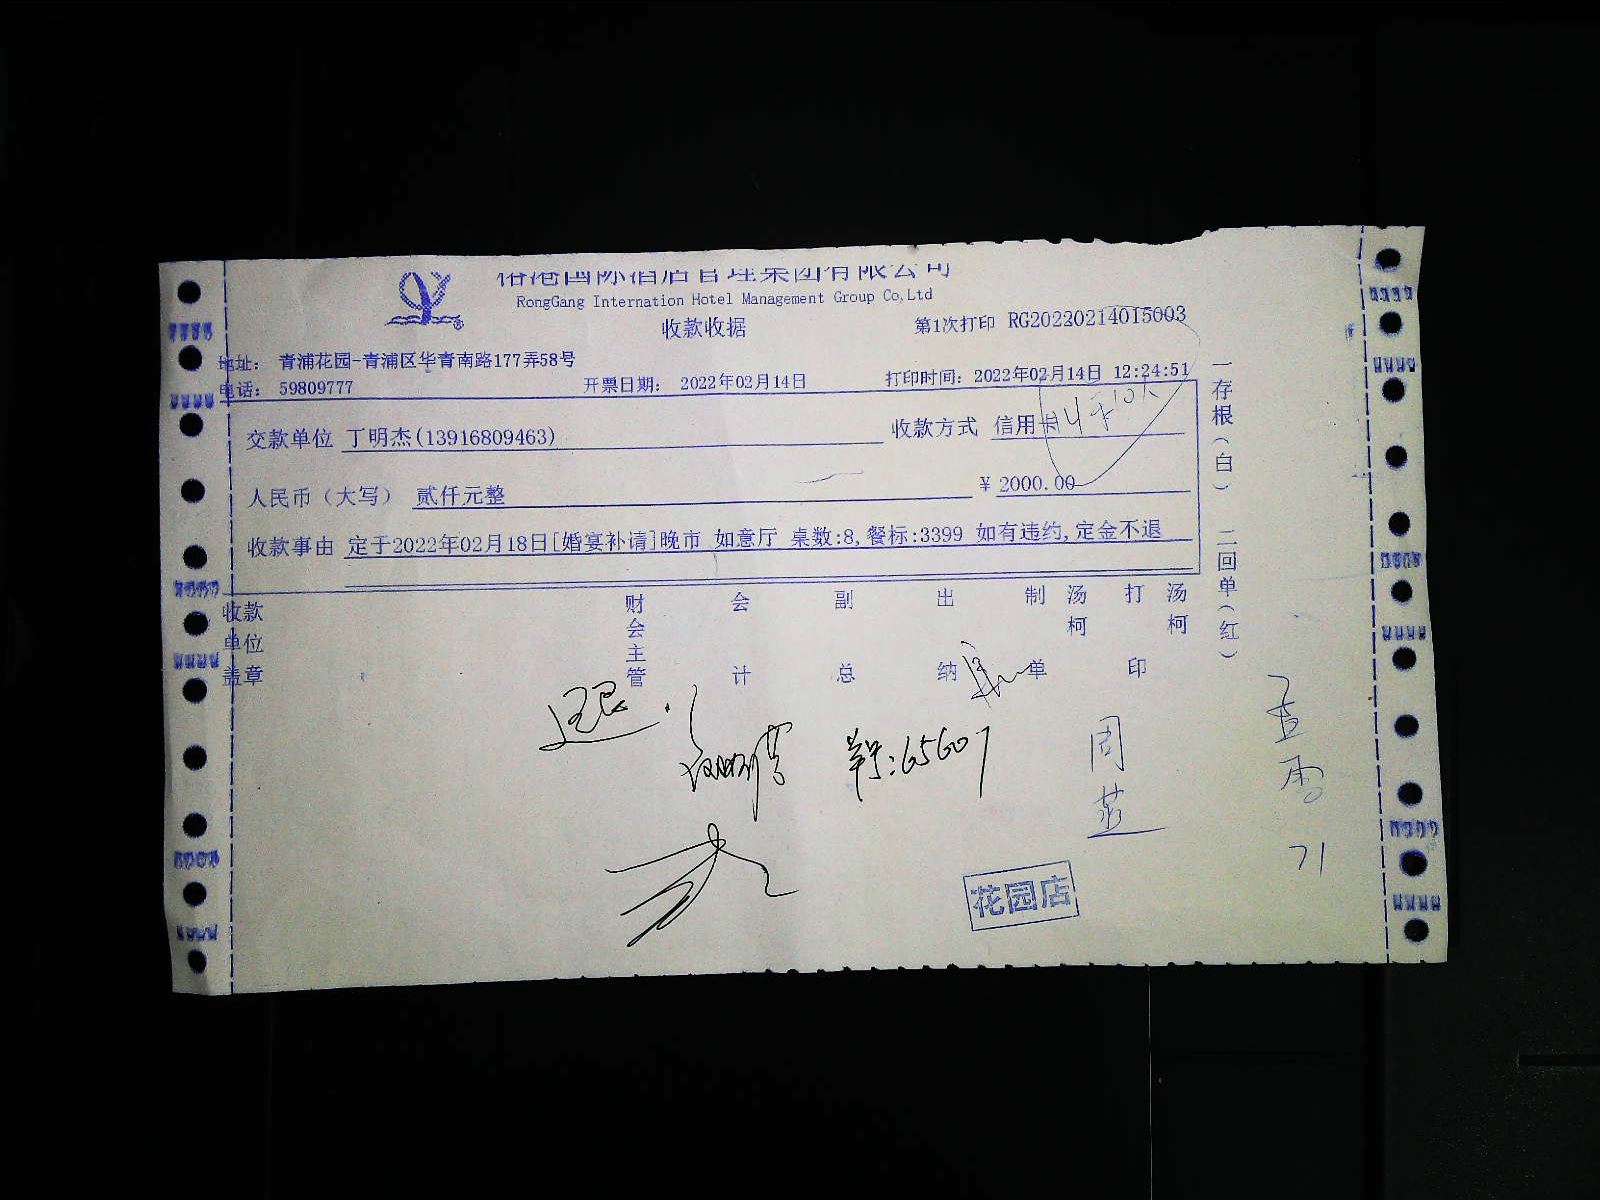 港国际酒店管理集团有限公司
RongGang Internation Hotel Management Group Co,Ltd
收款收据
第1次打印 RG20220214015003
地址： 青浦花园-青浦区华青南路177弄58号
电话： 59809777
开票日期： 2022年02月14日
打印时间：2022年02月14日 12:24:51
交款单位 丁明杰(13916809463)
收款方式 信用卡
人民币（大写） 贰仟元整
￥2000.00
收款事由 定于2022年02月18日[婚宴补请]晚市 如意厅 桌数:8,餐标:3399 如有违约,定金不退
一存根(白) 二回单(红)
收款单位盖章
财会主管
会计
副总
出纳
制单
汤柯
打印
汤柯
退
单号:65607
周
花园店